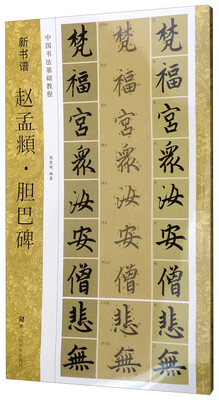 中国书法基础教程
新书谱
赵孟頫·胆巴碑
梵 梵 梵
福 福 福
宫 宫 宫
众 众 众
汝 汝 汝
安 安 安
僧 僧 僧
悲 悲 悲
無 無 無